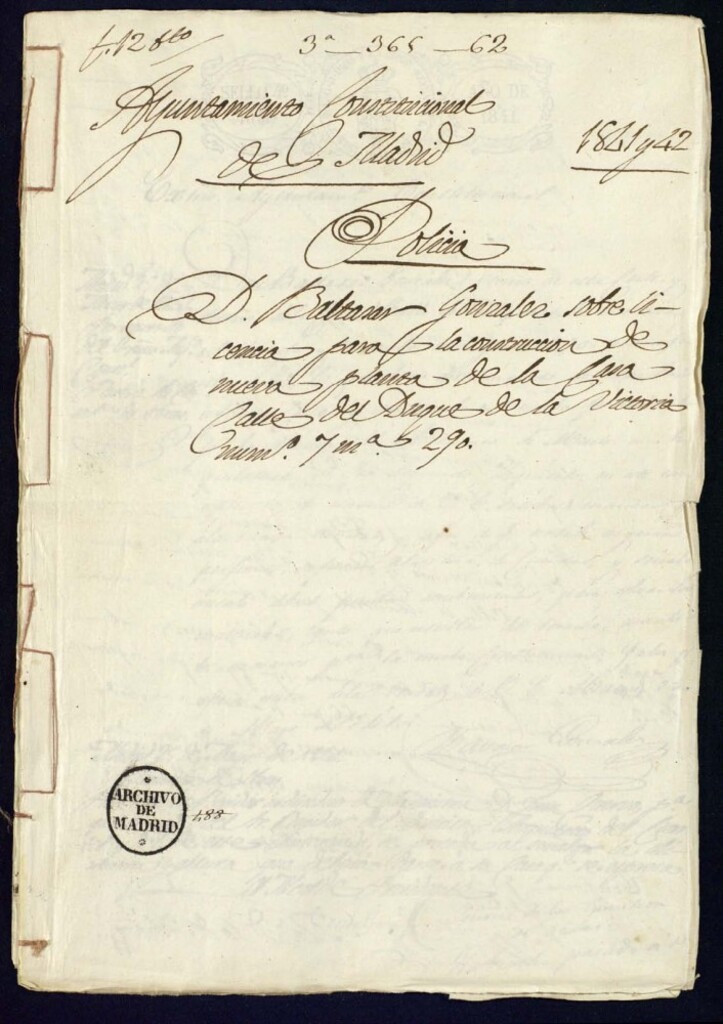 3ª - 365 - 62
Ayuntamiento Constitucional
de Madrid
1841 y 42
Policia
D. Baltasar Gonzalez sobre li-
cencia para la construccion de
nueva planta de la Casa
Calle del Duque de la Victoria
num.º 7 m.ª 290.
ARCHIVO
DE
MADRID